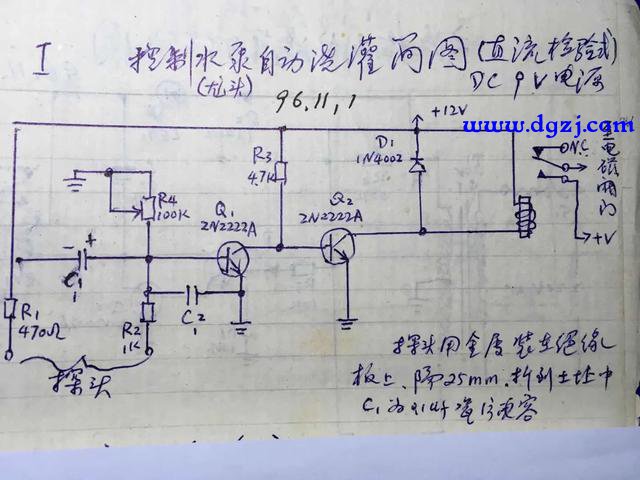 I 控制水泵自动浇灌简图(直流检验式)
(龙头) DC 9V电源
96.11,1
www.dgzj.com
+12V
D1
1N4002
NC
至电磁阀门
+V
R3
4.7K
R4
100K
Q1
2N2222A
Q2
2N2222A
- +
C1
R1
470Ω
R2
1K
C2
探头
探头用金属装在绝缘
板上、隔25mm.插到土壤中
C1为0.1uf